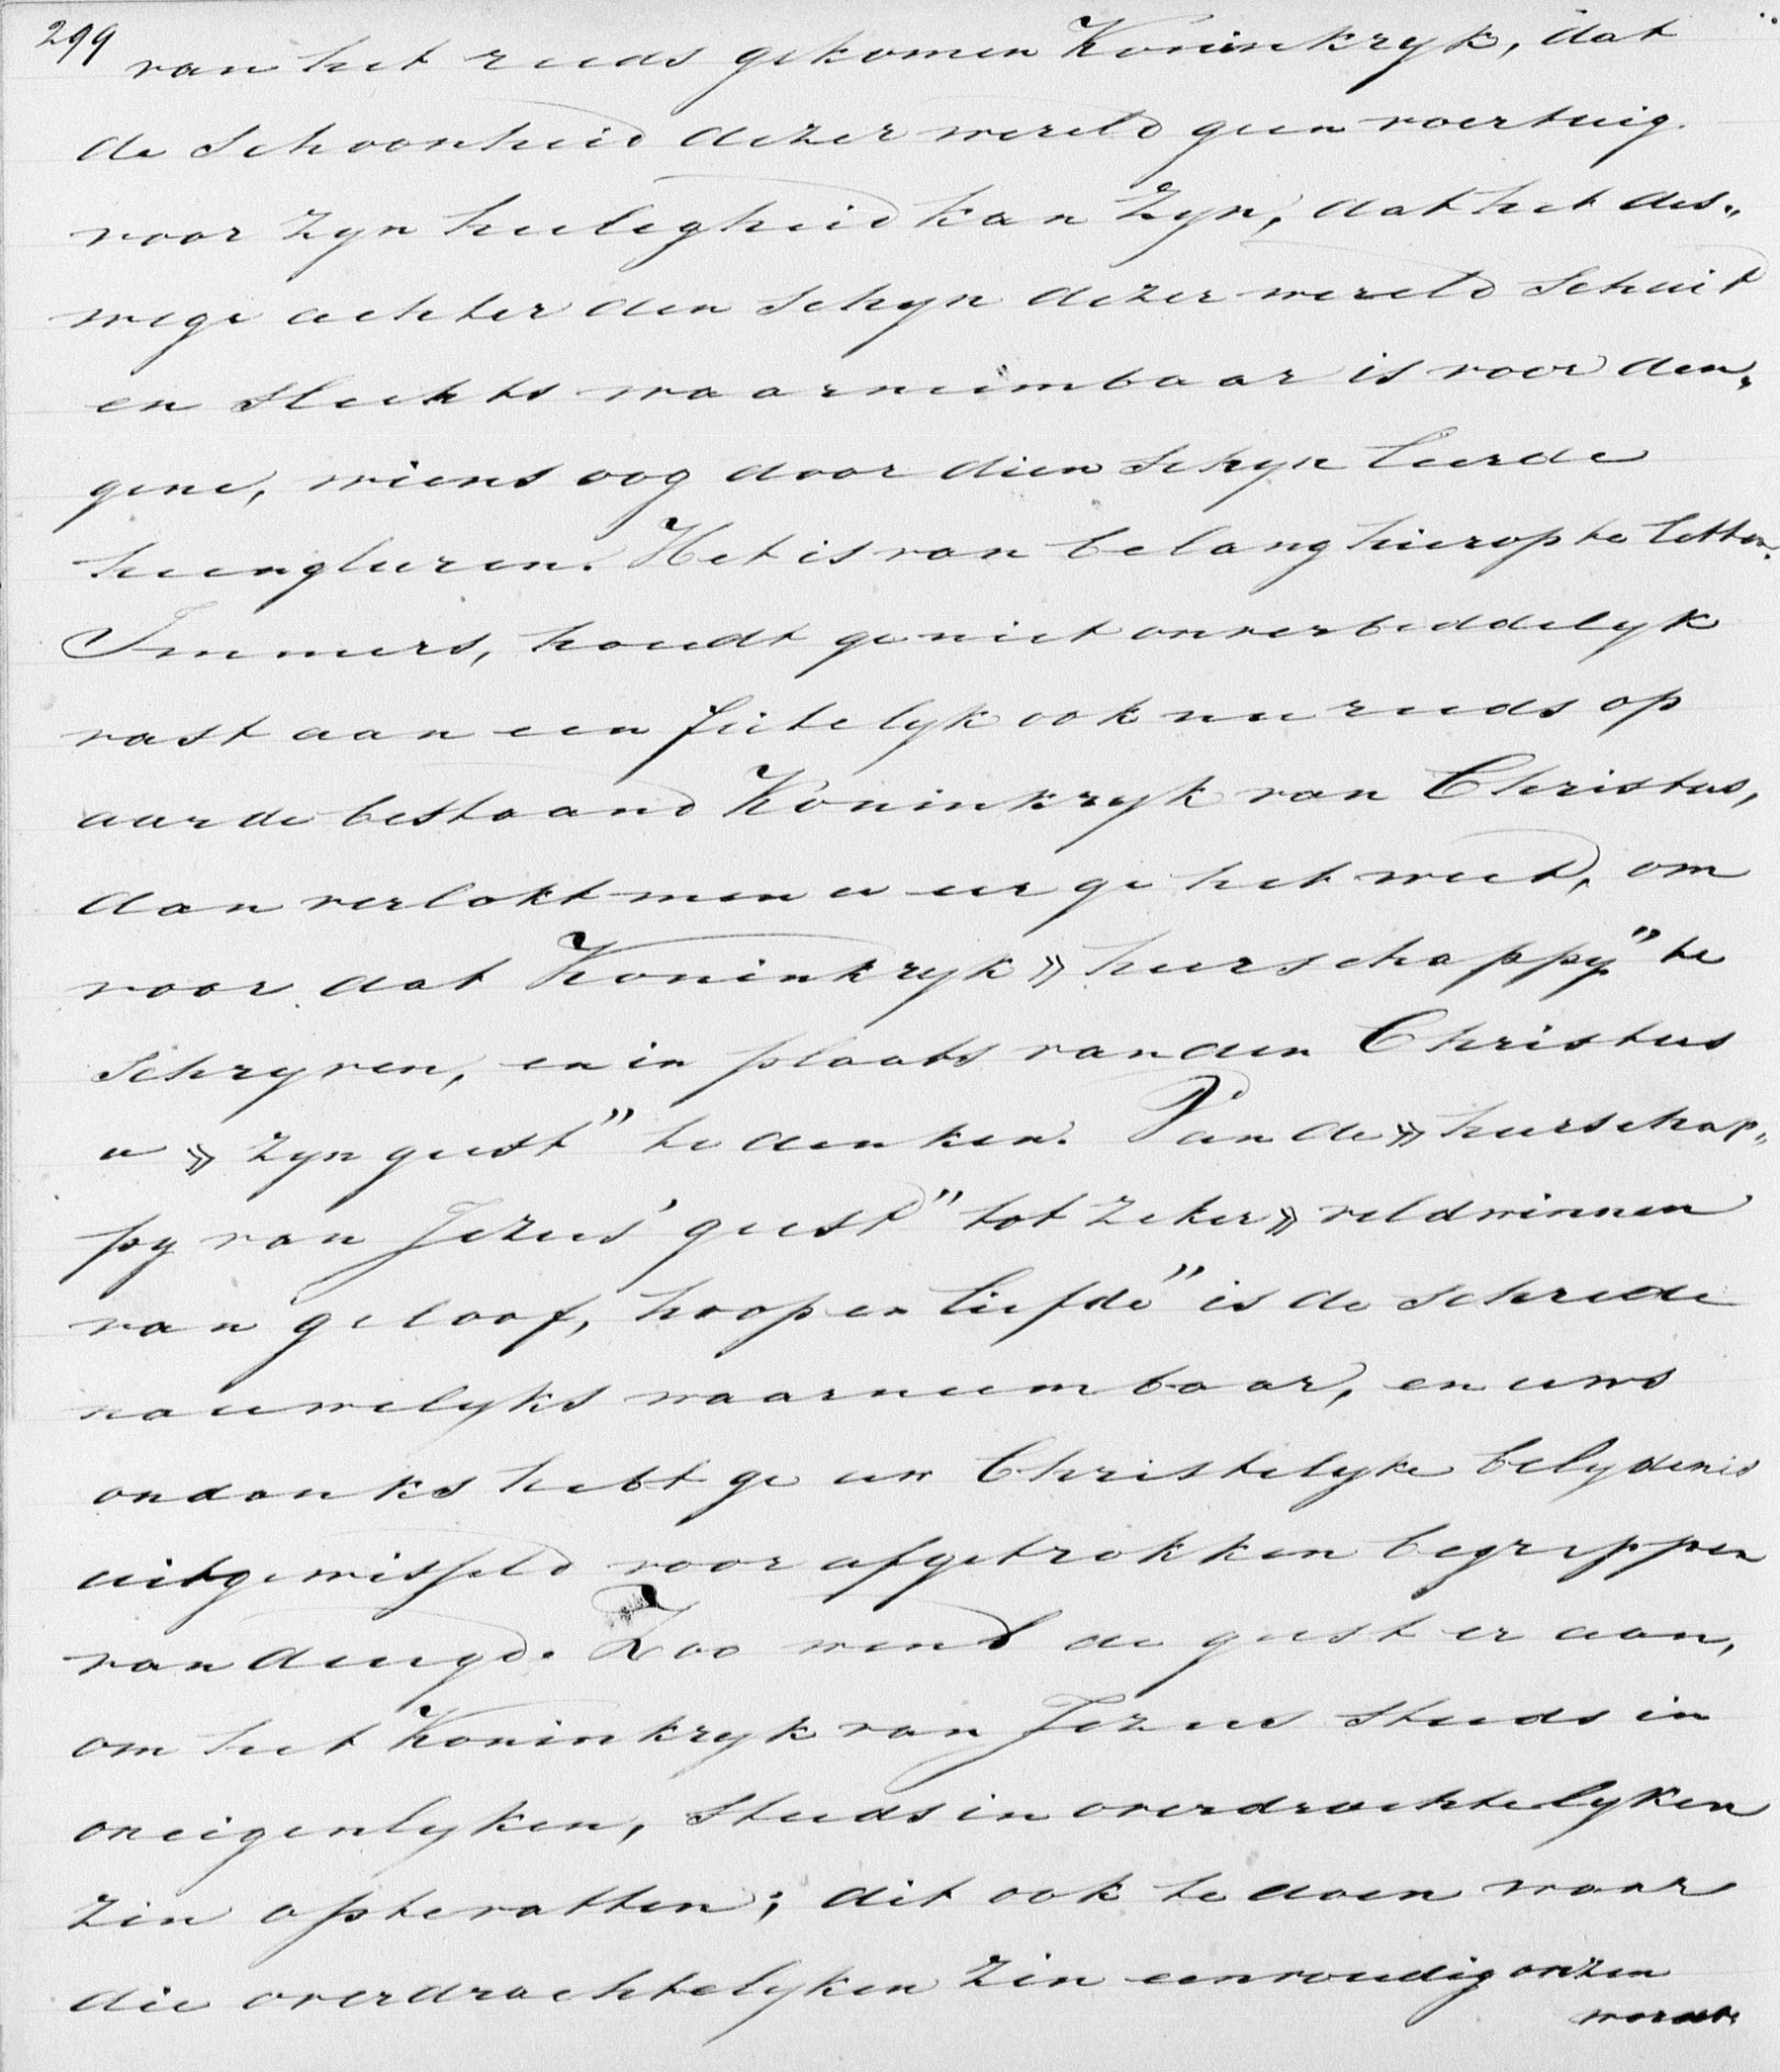 299 van het reeds gekomen Koninkryk, dat
de schoonheid dezer wereld geen voertuig
voor zyn heiligheid kan zyn, dat het des„
wege achter den schyn dezer wereld schuilt
en slechts waarneembaar is voor den„
gene, wiens oog door dien schyn leerde
heengluren. Het is van belang hierop te letten.
Immers, houdt ge niet onverbiddelyk
vast aan een feitelyk ook nu reeds op
aarde bestaand Koninkryk van Christus,
dan verlokt men u eer ge het weet, om
voor dat Koninkryk » heerschappy" te
schryven, en in plaats van den Christus
u » zyn geest" te denken. Van de » heerschap„
py van Jezus' geest" tot zeker » veldwinnen
van geloof, hoop en liefde" is de schrede
nauwelyks waarneembaar, en uws
ondanks hebt ge uw Christelyke belydenis
uitgewisseld voor afgetrokken begrippen
van deugd. Zoo wend de geest er aan,
om het Koninkryk van Jezus steeds in
oneigenlyken, steeds in overdrachtelyken
zin op te vatten; dit ook te doen waar
die overdrachtelyken zin eenvoudig onzin
wordt.